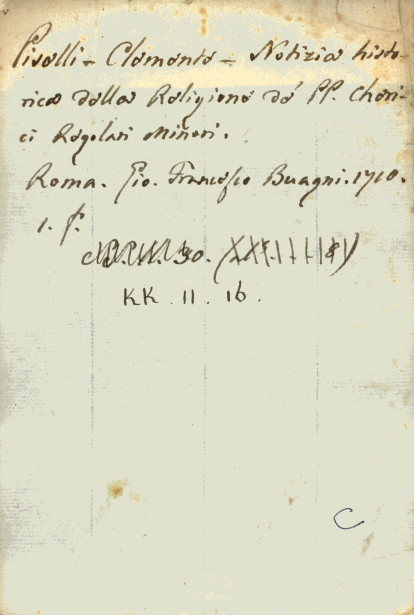 Piselli - Clemente - Notizia histo-
rica della Religione de' PP. Cheri-
ci Regolari Minori.
Roma. Gio. Francesco Buagni. 1710.
1. f.
30.
KK. II. 16.
C